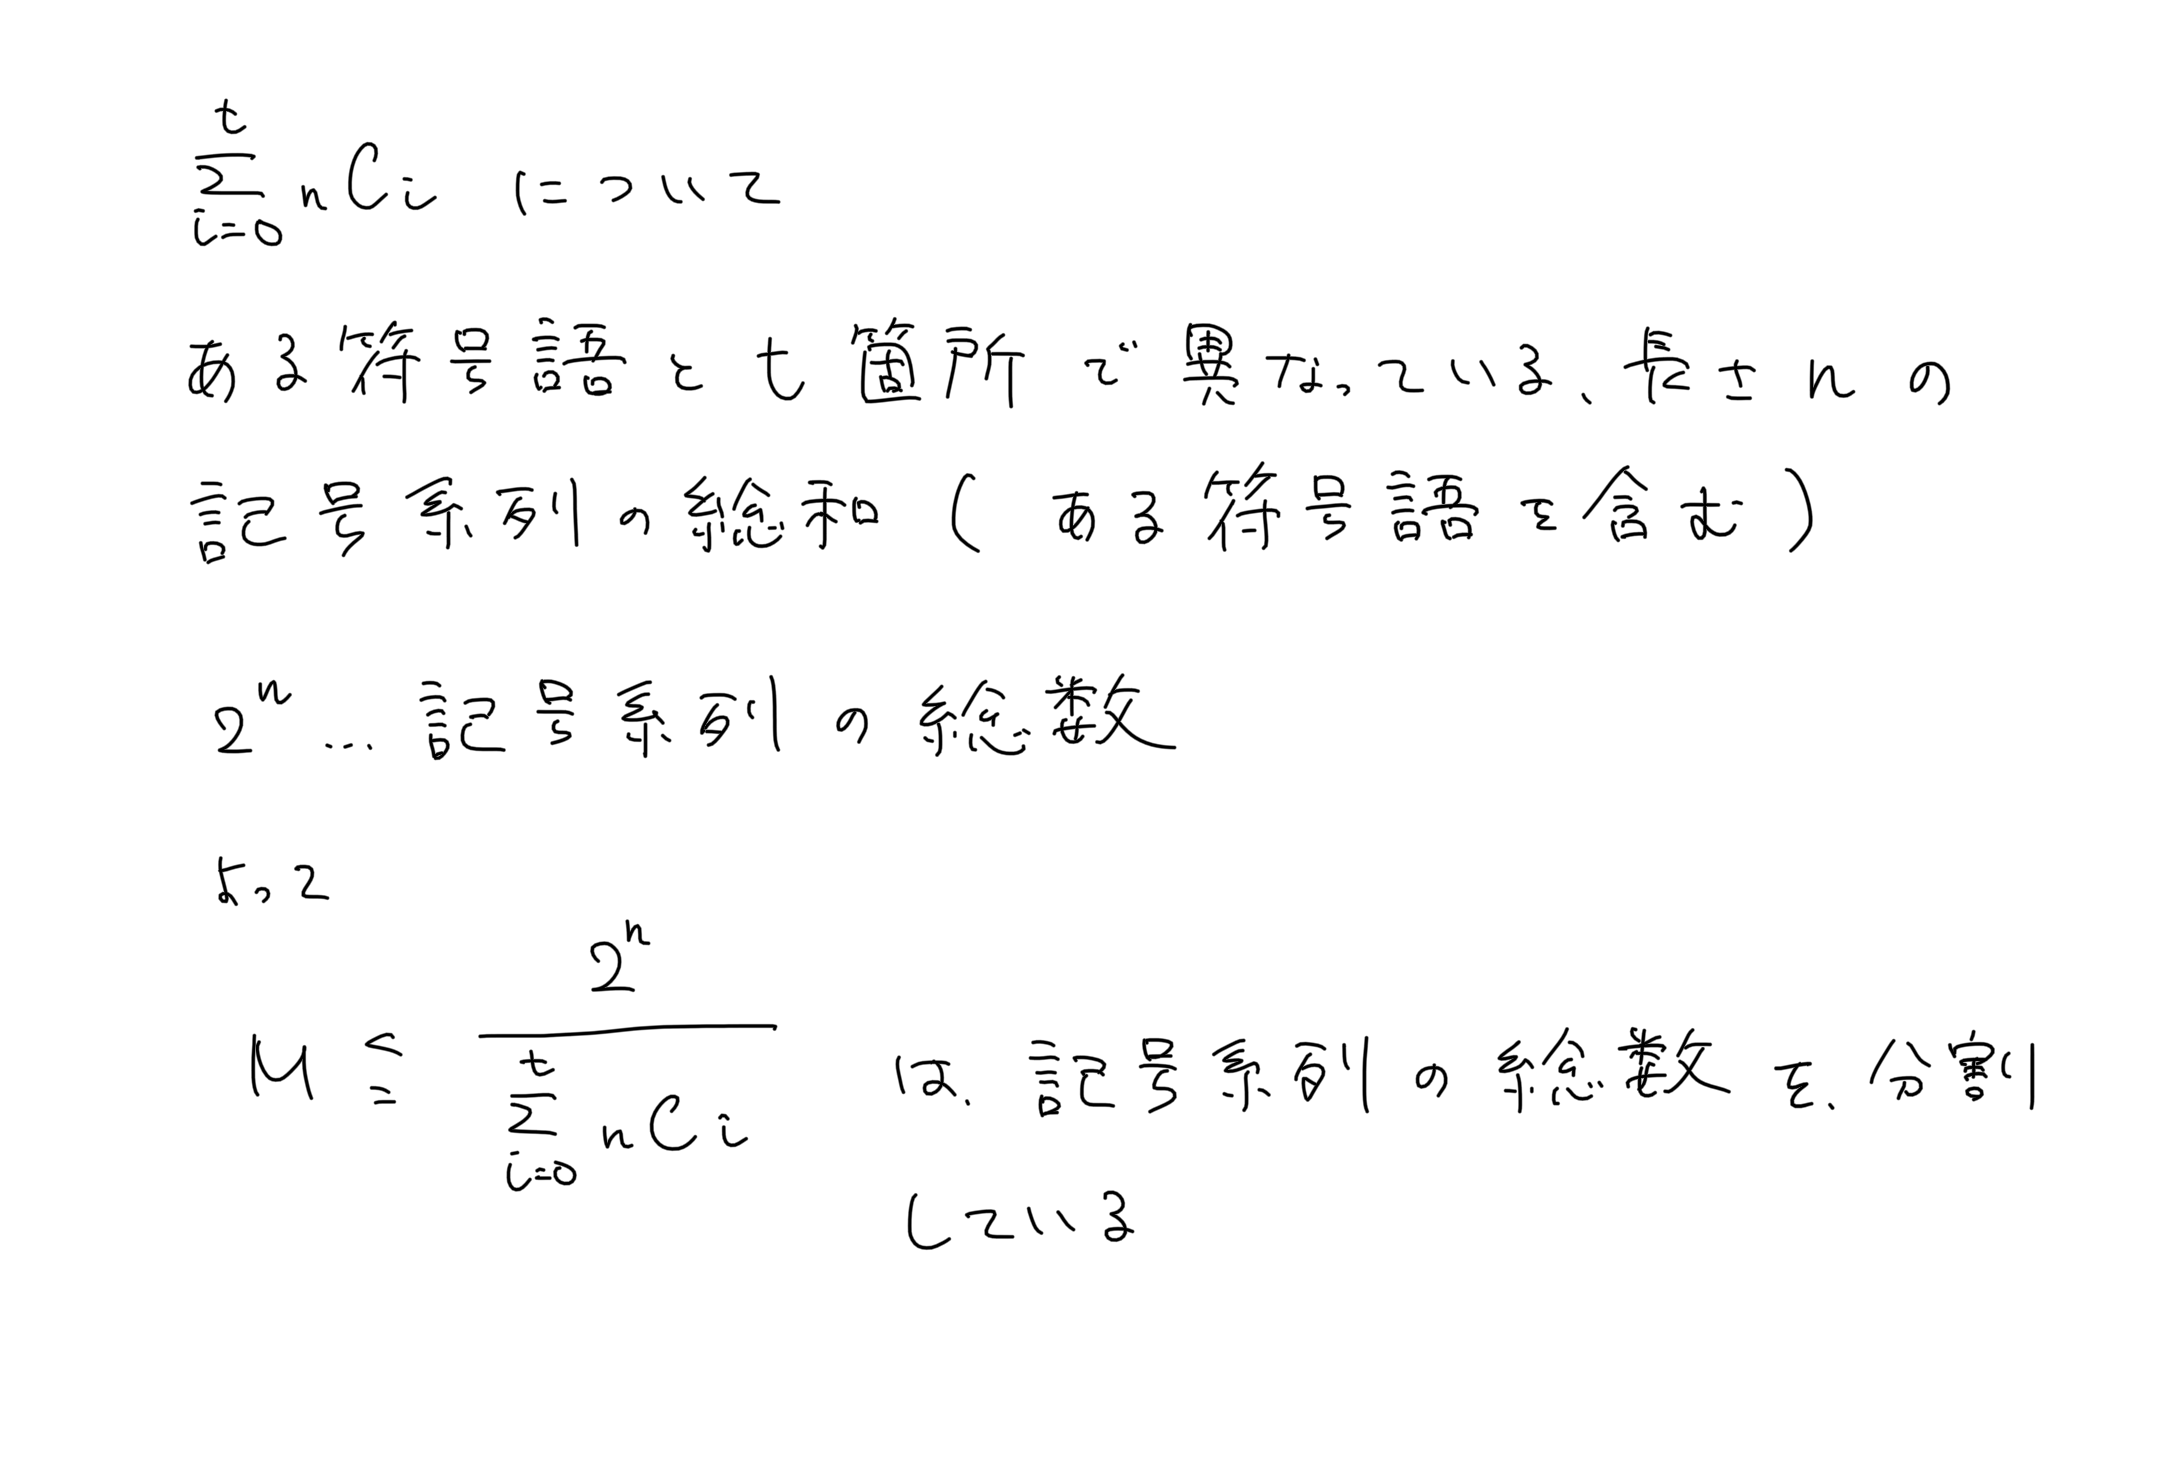 \sum_{i=0}^{t} {}_nC_i について
ある符号語と t 箇所で異なっている、長さ n の
記号系列の総和 ( ある符号語を含む )
2^n … 記号系列の総数
よって
M ≦ \frac{2^n}{\sum_{i=0}^{t} {}_nC_i} は、記号系列の総数を、分割
している